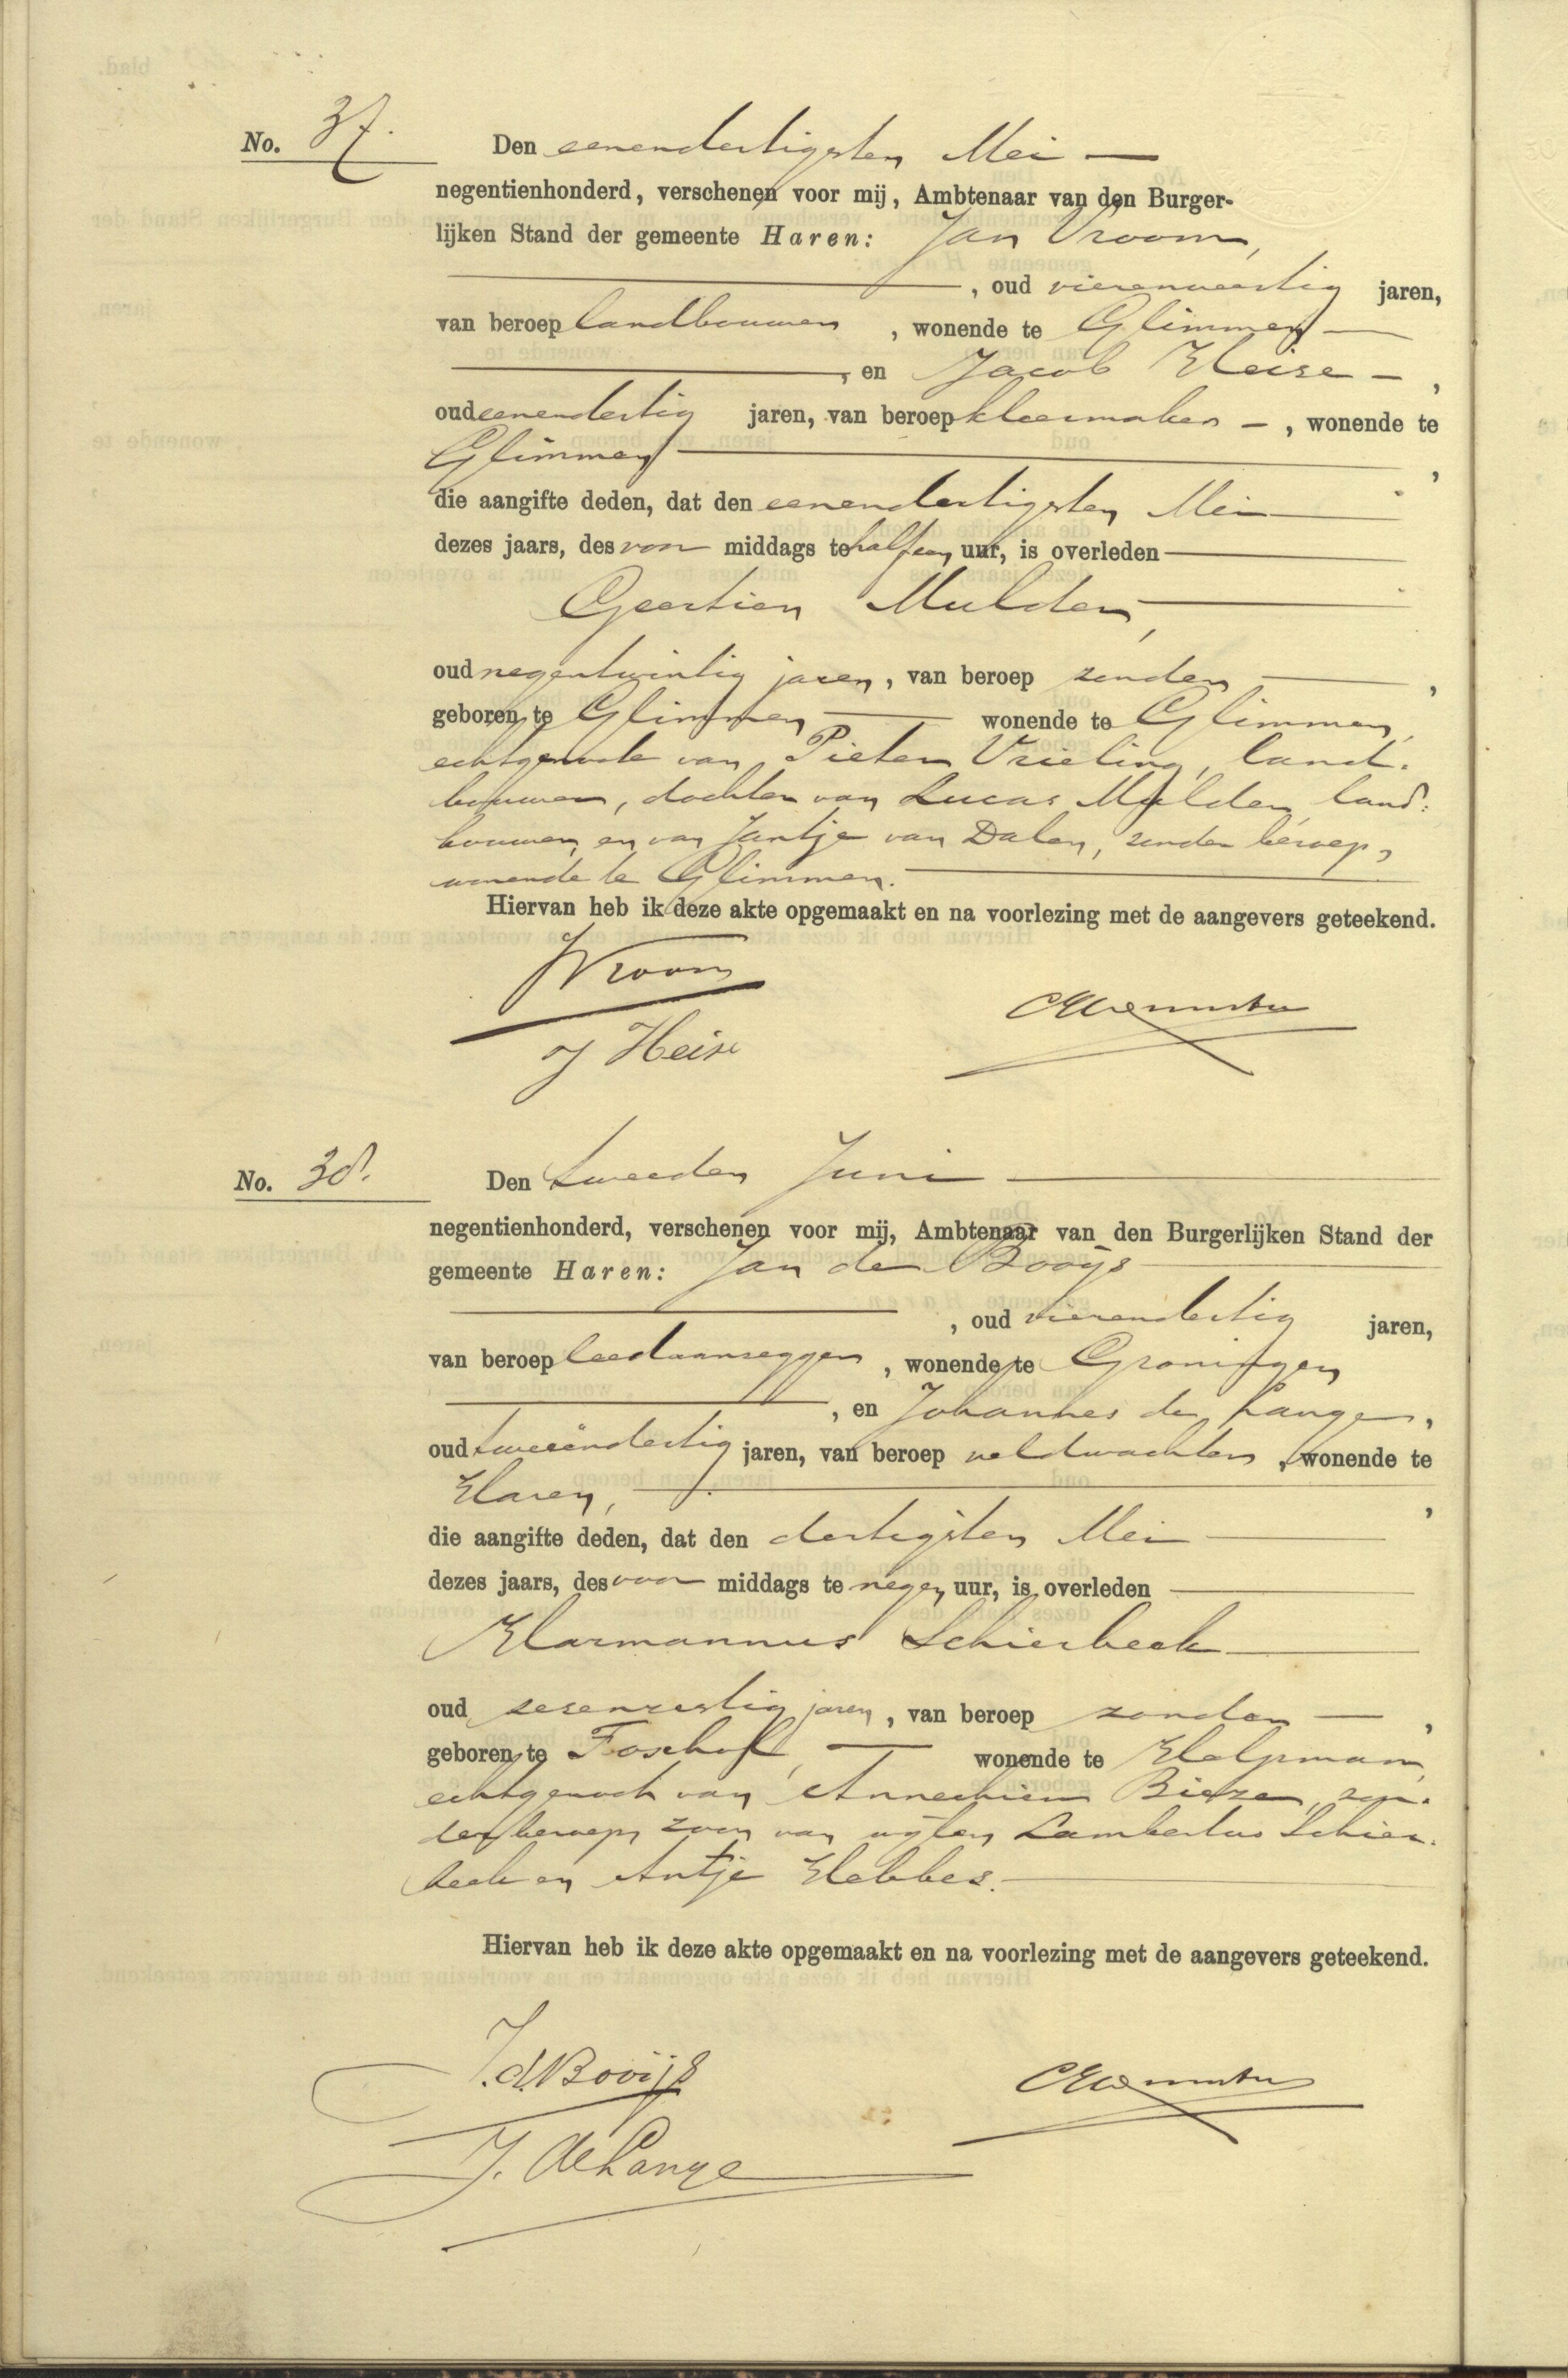 No. 37.
Den eenendertigsten Mei
negentienhonderd, verschenen voor mij, Ambtenaar van den Burger-
lijken Stand der gemeente Haren: Jan Vroom,
, oud vierenveertig jaren,
van beroep landbouwer, wonende te Glimmen
, en Jacob Heise,
oud eenendertig jaren, van beroep kleermaker, wonende te
Glimmen,
die aangifte deden, dat den eenendertigsten Mei
dezes jaars, des voor middags te half een uur, is overleden
Geertien Mulder,
oud negentwintig jaren, van beroep zonder,
geboren te Glimmen wonende te Glimmen,
echtgenoote van Pieter Vrieling, land-
bouwer, dochter van Lucas Mulder, land-
bouwer, en van Jantje van Dalen, zonder beroep,
wonende te Glimmen.
Hiervan heb ik deze akte opgemaakt en na voorlezing met de aangevers geteekend.
JVroom
J Heise
No. 38.
Den tweeden Juni
negentienhonderd, verschenen voor mij, Ambtenaar van den Burgerlijken Stand der
gemeente Haren: Jan de Booijs
, oud vierendertig jaren,
van beroep leedaanzegger, wonende te Groningen
, en Johannes de Lange,
oud tweeëndertig jaren, van beroep veldwachter, wonende te
Haren,
die aangifte deden, dat den dertigsten Mei
dezes jaars, des voor middags te negen uur, is overleden
Harmannus Schierbeek
oud zesenzestig jaren, van beroep zonder,
geboren te Foxhol, wonende te Helpman,
echtgenoot van Annechien Bieze, zon-
der beroep, zoon van wijlen Lambertus Schier-
beek en Antje Hebbes.
Hiervan heb ik deze akte opgemaakt en na voorlezing met de aangevers geteekend.
J.d.Booijs
J. de Lange